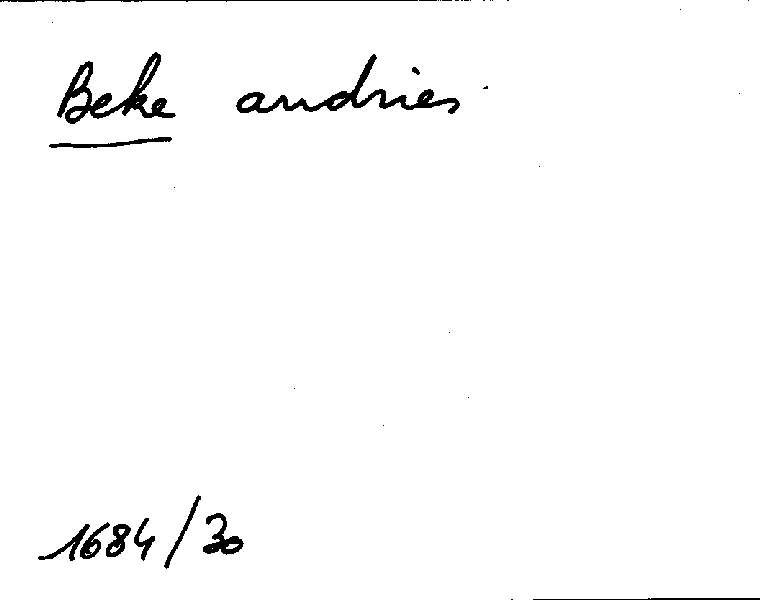 Beke andries
1684/30